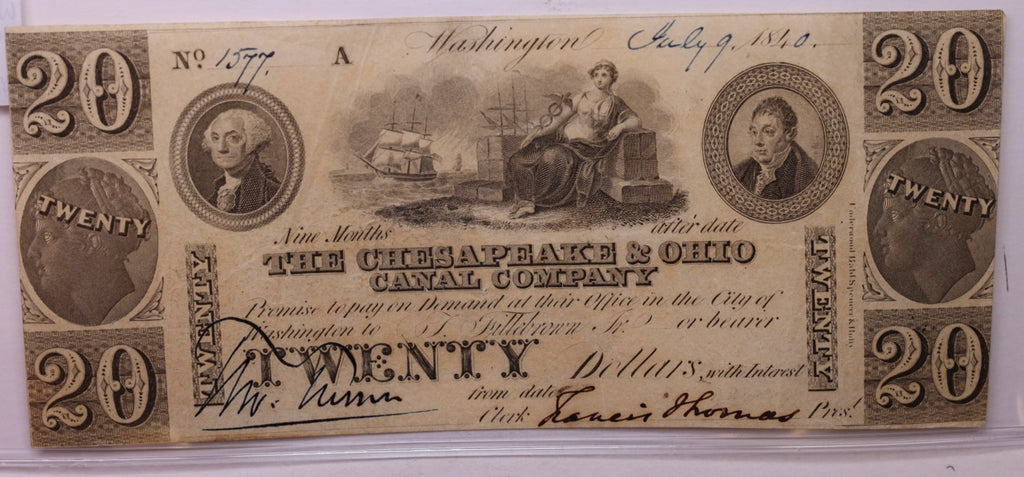 20 20
Nº 1577. A Washington July 9. 1840.
TWENTY TWENTY
Nine Months after date
THE CHESAPEAKE & OHIO
CANAL COMPANY
Promise to pay on Demand at their Office in the City of
Washington to J. Fillebrown Jr. or bearer
TWENTY Dollars, with Interest
from date
Clerk Francis Thomas Prest.
TWENTY TWENTY
20 20
Underwood Bald Spencer & Hufty